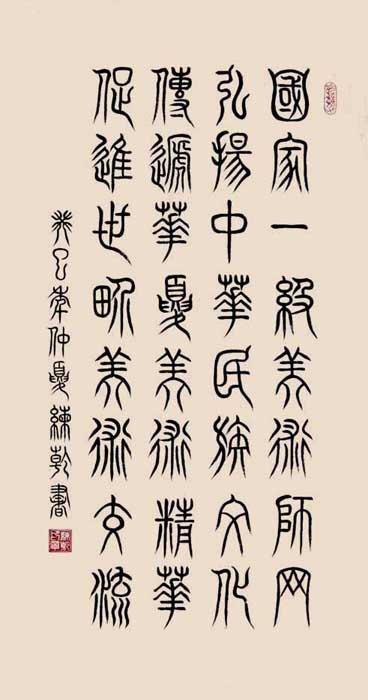 國家一級美術師网
弘揚中華民族文化
傳遞華夏美術精華
促進世界美術交流
癸巳年仲夏練乾書